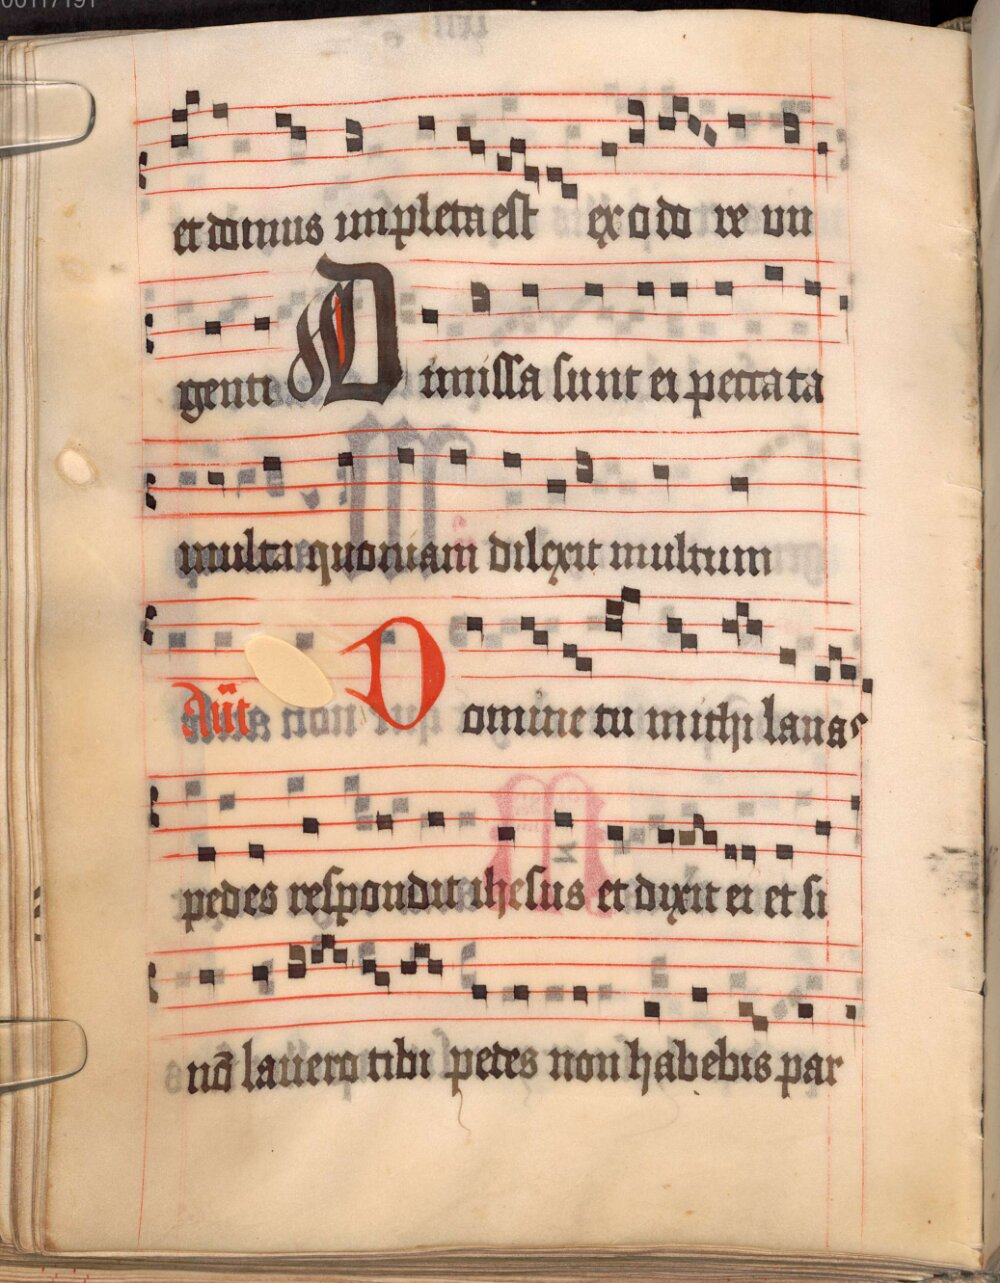 00117191
et domus impleta est ex odo re un
genti Dimissa sunt ei peccata
multa quoniam dilexit multum
Añt Domine tu michi lauas
pedes respondit ihesus et dixit ei et si
nō lauero tibi pedes non habebis par